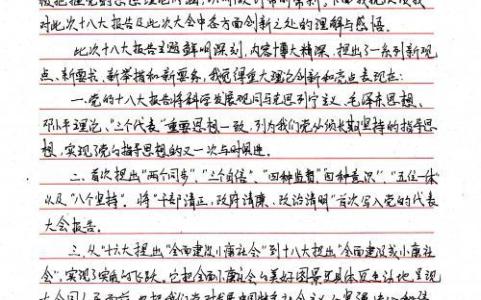 对此次十八大报告及此次大会中各方面创新之处的理解与感悟。
此次十八大报告主题鲜明深刻，内容博大精深，提出了一系列新观
点、新要求、新举措和新要务，我觉得重大理论创新和亮点表现在：
一.党的十八大报告将科学发展观同马克思列宁主义、毛泽东思想、
邓小平理论、“三个代表”重要思想一致，列为我们党必须长期坚持的指导思
想，实现了党的指导思想的又一次与时俱进。
二、首次提出“两个同步”、“三个自信”、“四种监督”“四种意识”、“五位一体”
以及“八个坚持”，将“干部清正，政府清廉，政治清明”首次写入党的代表
大会报告。
三、从“十六大提出“全面建设小康社会”到十八大提出“全面建成小康社
会”，实现了实质的飞跃。它把全面小康社会的美好图景更具体更生动地呈现